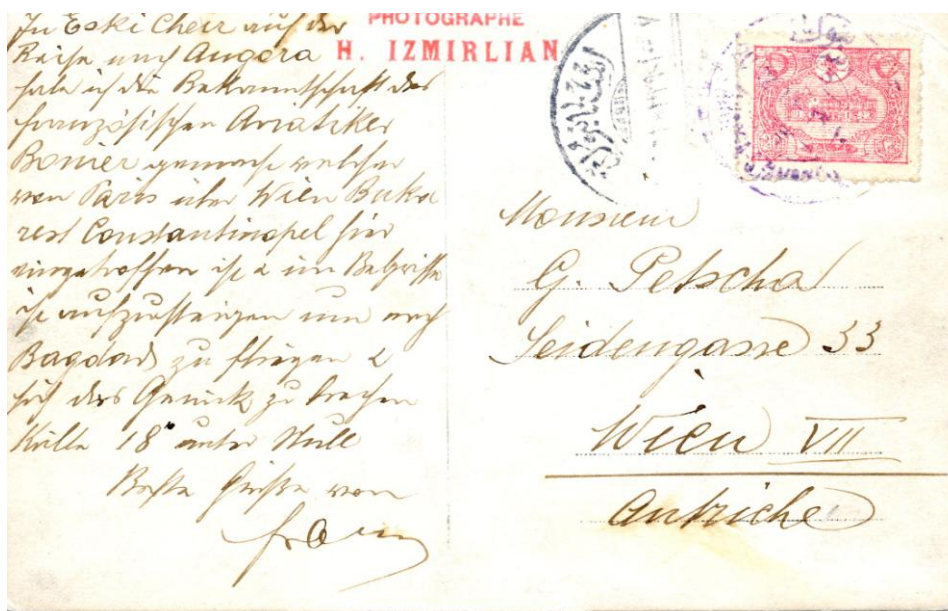 PHOTOGRAPHE
H. IZMIRLIAN
In Eski Cheir auf der
Reise nach Angora
habe ich die Bekanntschaft des
französischen Aviatiker
Bonier gemacht welcher
von Paris über Wien Buka
rest Constantinopel hier
eingetroffen ist & im Begriffe
ist aufzusteigen um nach
Bagdad zu fliegen &
sich das Genick zu brechen
Kälte 18° unter Null
Beste Grüße von
Monsieur
G. Petschal
Seidengasse 33
Wien VII
Autriche